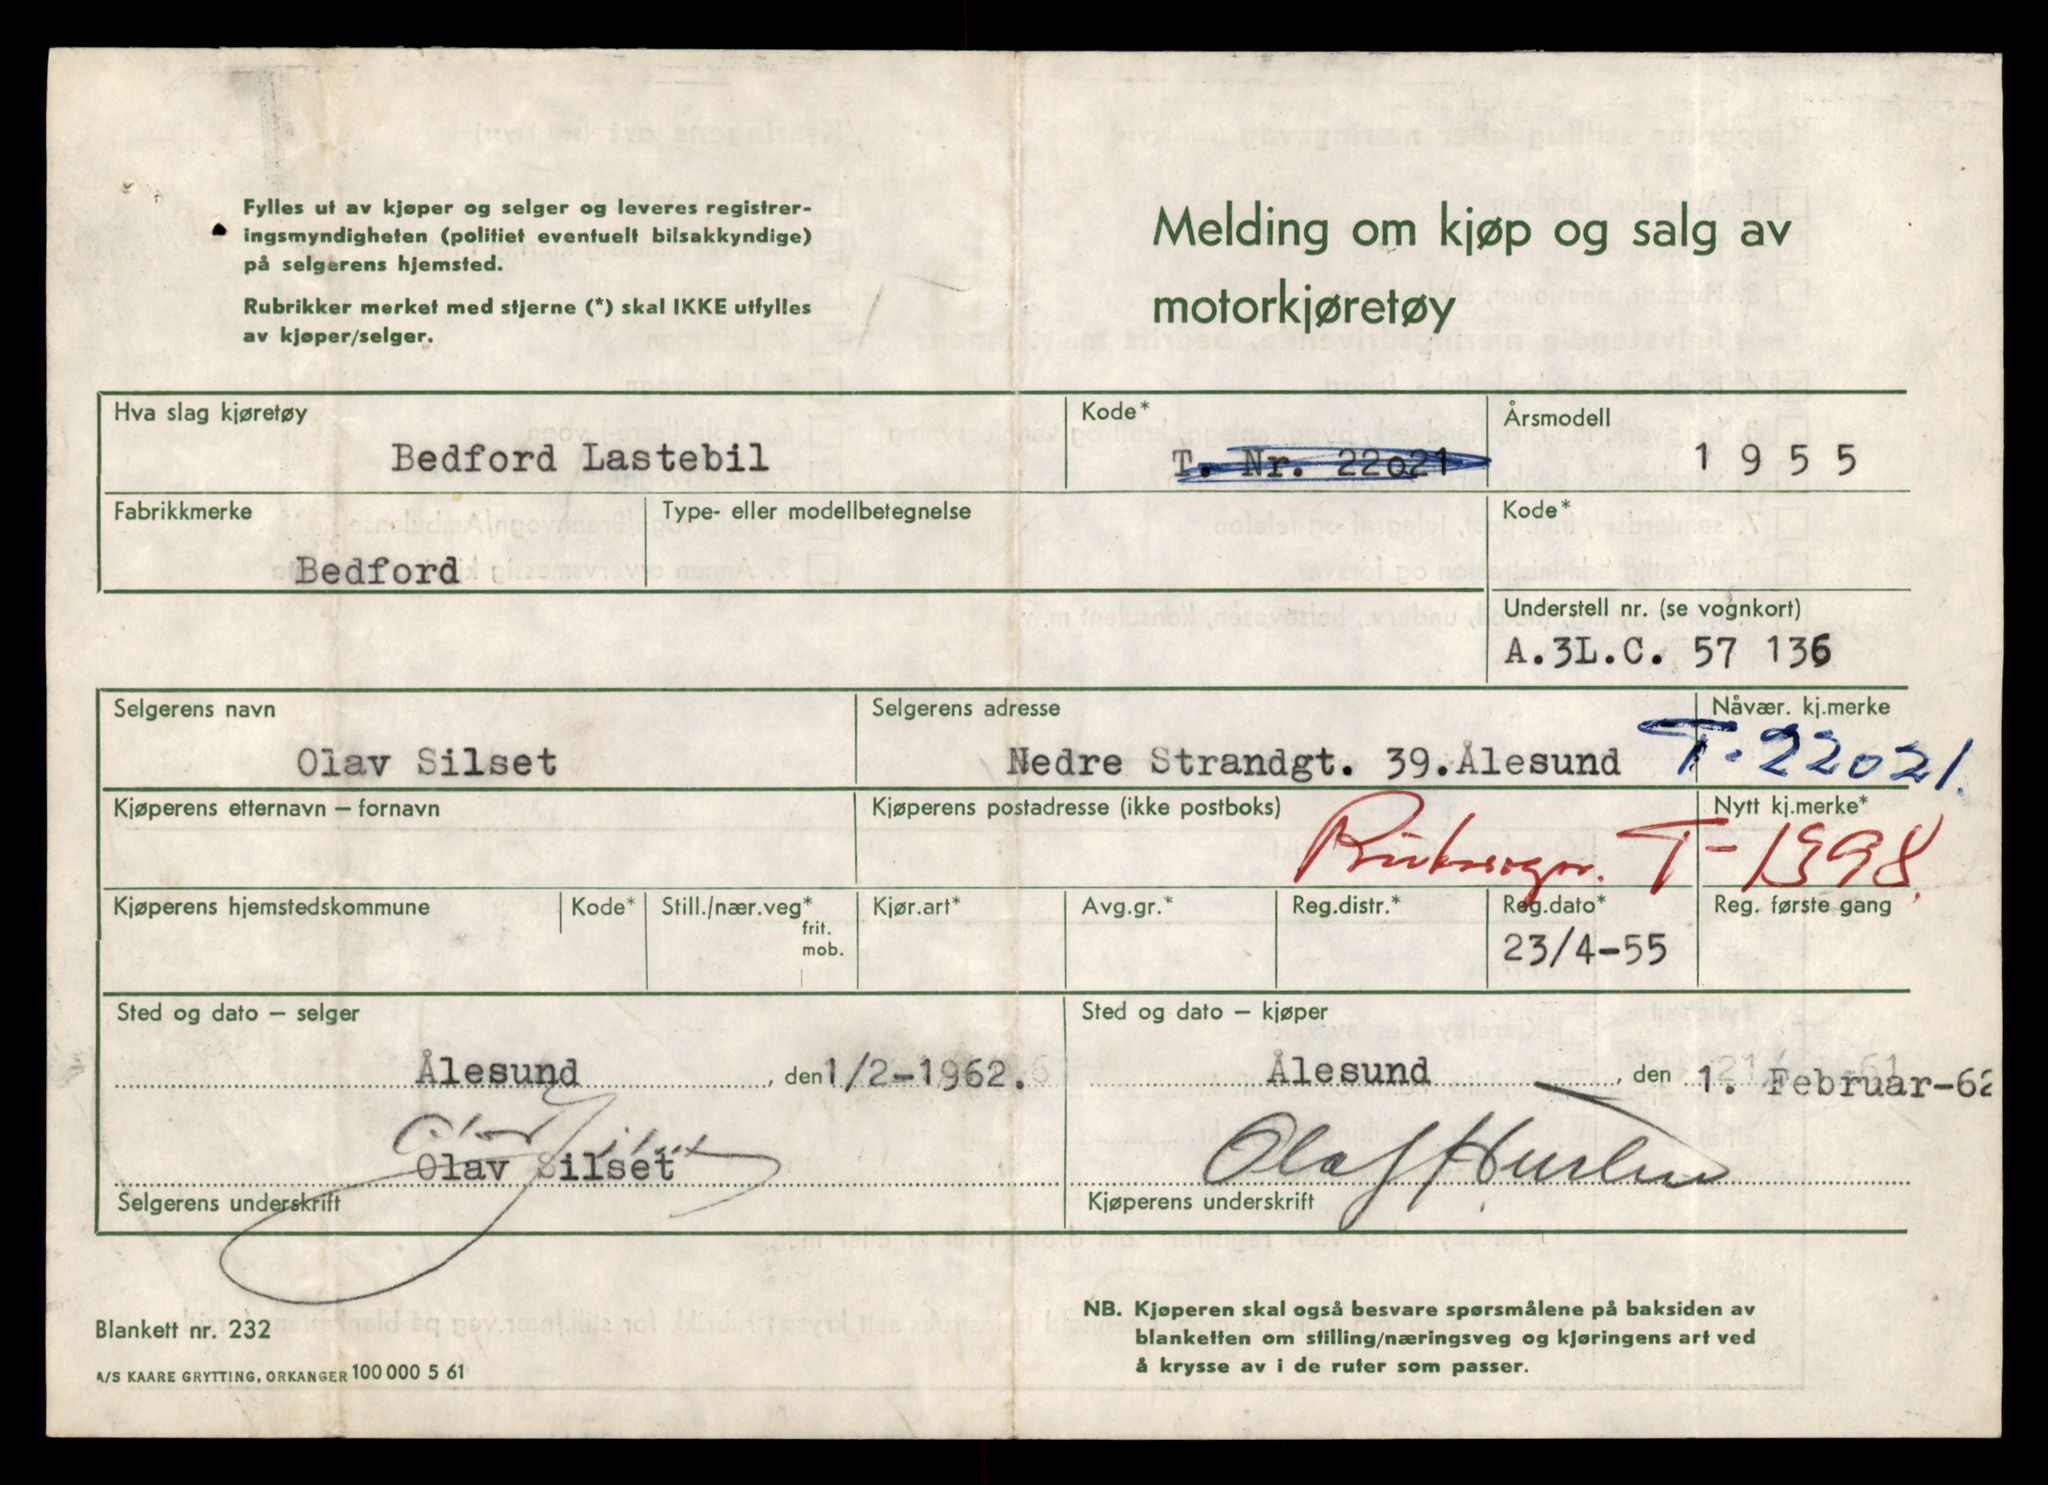 Fylles ut av kjøper og selger og leveres registrer-
ingsmyndigheten (politiet eventuelt bilsakkyndige)
på selgerens hjemsted.
Rubrikker merket med stjerne (*) skal IKKE utfylles
av kjøper/selger.
Melding om kjøp og salg av
motorkjøretøy
Hva slag kjøretøy
Bedford Lastebil
Kode*
T. Nr. 22o21
Årsmodell
1 9 5 5
Fabrikkmerke
Bedford
Type- eller modellbetegnelse
Kode*
Understell nr. (se vognkort)
A.3L.C. 57 136
Selgerens navn
Olav Silset
Selgerens adresse
Nedre Strandgt. 39.Ålesund
Nåvær. kj.merke
T-22021.
Kjøperens etternavn – fornavn
Kjøperens postadresse (ikke postboks)
Nytt kj.merke*
T-1998.
Kjøperens hjemstedskommune
Kode*
Still./nær.veg*
frit.
mob.
Kjør.art*
Avg.gr.*
Reg.distr.*
Reg.dato*
23/4-55
Reg. første gang
Sted og dato – selger
Ålesund , den 1/2-1962.
Olav Silset
Olav Silset
Selgerens underskrift
Sted og dato – kjøper
Ålesund , den 1. Februar-62
Olaf
Kjøperens underskrift
Blankett nr. 232
A/S KAARE GRYTTING, ORKANGER 100 000 5 61
NB. Kjøperen skal også besvare spørsmålene på baksiden av
blanketten om stilling/næringsveg og kjøringens art ved
å krysse av i de ruter som passer.